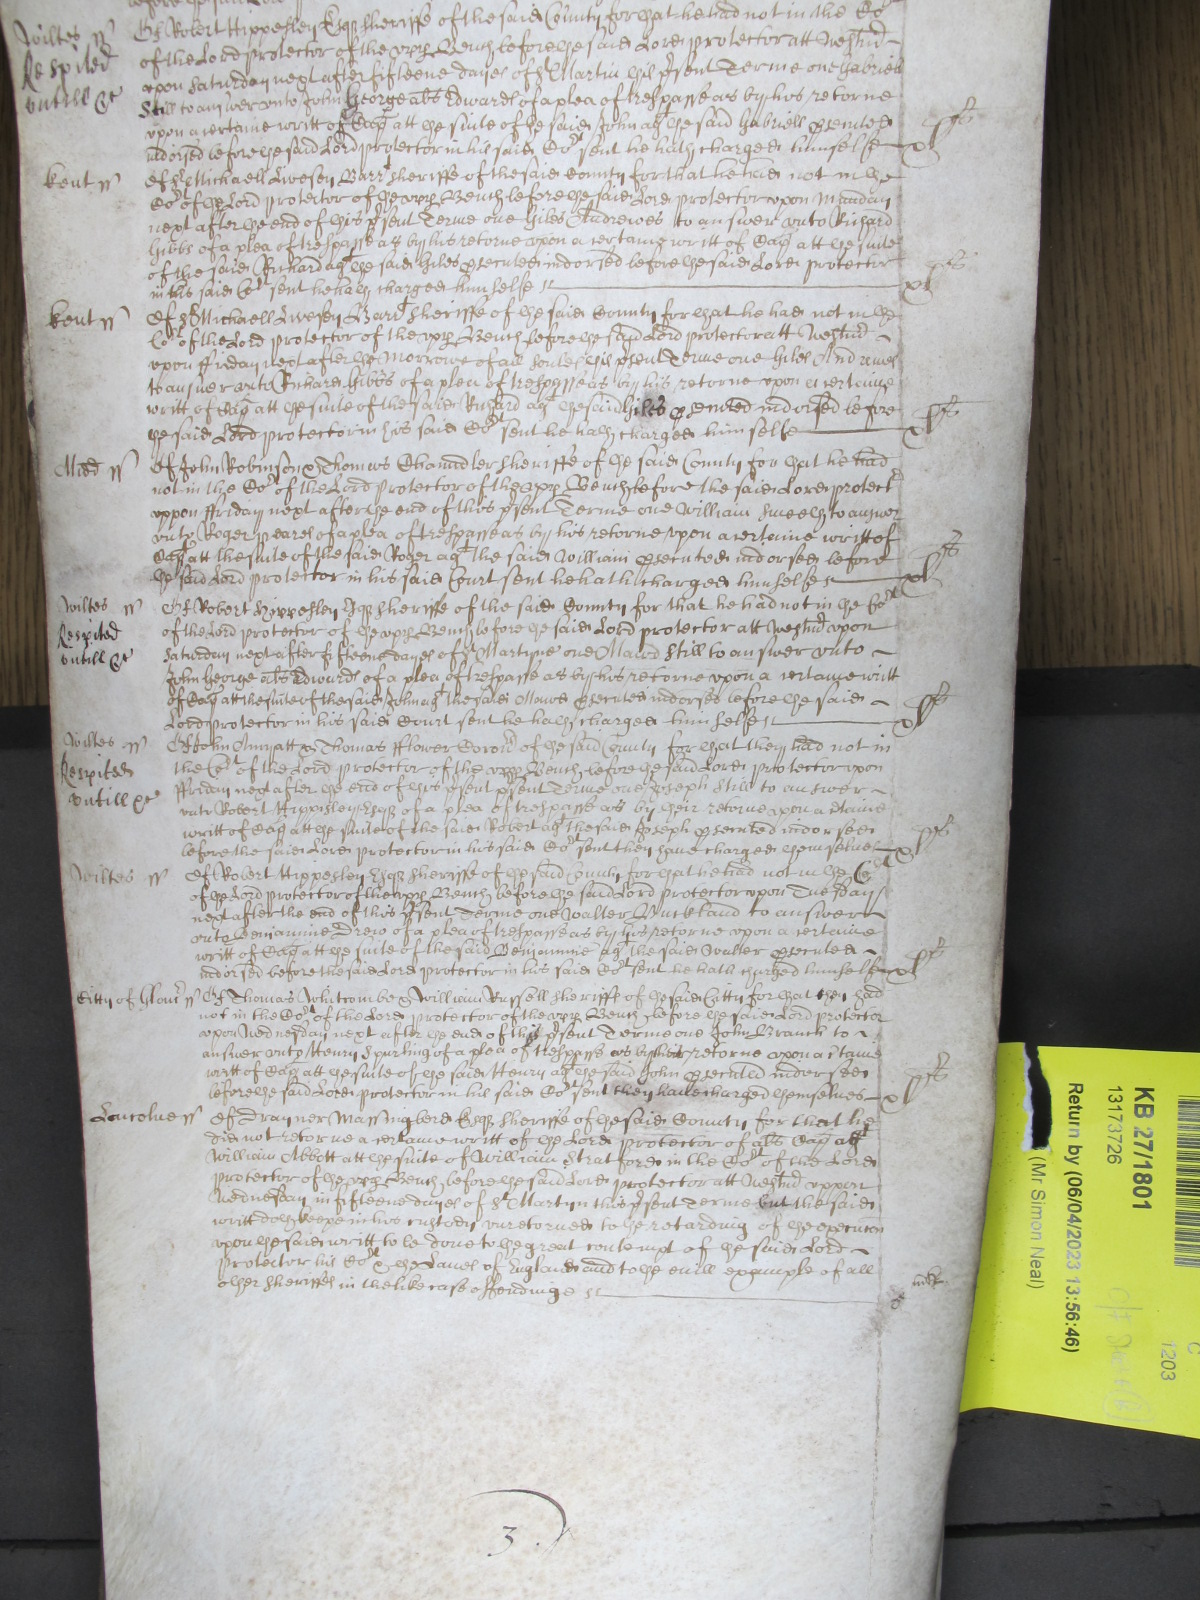 Wiltes ss Of Robert Hippesley Esqr Sheriffe of the said County for that he had not in the Cort
Respited of the Lord protector of the upp Bench before the said Lord protector att Westmr
untill &c upon Saturday next after fifteene dayes of St Martin this psent Terme one Gabriell
Still to answer unto John George als Edwards of a plea of trespasse as by his retorne
upon a certaine writt of Cap att the suite of the said John agt the said Gabriell psecuted
indorsed before the said Lord protector in his said Cort sent he hath charged himselfe xls
Kent ss Of Sr Michaell Livesey Barrt Sheriffe of the said County for that he had not in the
Cort of the Lord protector of the upp Bench before the said Lord protector upon Munday
next after the end of this psent Terme one Giles Andrewes to answer unto Richard
Gibbs of a plea of trespasse as by his retorne upon a certaine writt of Cap att the suite
of the said Richard agt the said Giles psecuted indorsed before the said Lord protector
in his said Cort sent he hath charged himselfe xls
Kent ss Of Sr Michaell Livesey Barrt Sheriffe of the said County for that he had not in the
Cort of the Lord protector of the upp Bench before the said Lord protector att Westmr
upon ffriday next after the Morrowe of all Soules this psent Terme one Giles Andrewes
to answer unto Richard Gibbs of a plea of trespasse as by his retorne upon a certaine
writt of Cap att the suite of the said Richard agt the said Giles psecuted indorsed before
the said Lord protector in his said Cort sent he hath charged himselfe xls
Midd ss Of John Robinson & Thomas Chandler Sheriffe of the said County for that he had
not in the Cort of the Lord protector of the upp Bench before the said Lord protector
uppon ffriday next after the end of this psent Terme one William to answer
unto Roger of a plea of trespasse as by his retorne upon a certaine writt of
Cap att the suite of the said Roger agt the said William psecuted indorsed before
the said Lord protector in his said Court sent he hath charged himselfe xls
Wiltes ss Of Robert Hippesley Esqr Sheriffe of the said County for that he had not in the Cort
Respited of the Lord protector of the upp Bench before the said Lord protector att Westmr upon
untill &c Saturday next after fifteene dayes of St Martyne one Maud Still to answer unto
John George als Edwards of a plea of trespasse as by his retorne upon a certaine writt
of Cap att the suite of the said John agt the said Maud psecuted indorsed before the said
Lord protector in his said Court sent he hath charged himselfe xls
Wiltes ss Of John & Thomas fflower Coronrs of the said County for that they had not in
Respited the Cort of the Lord protector of the upp Bench before the said Lord protector upon
untill &c ffriday next after the end of this psent psent Terme one Joseph Still to answer
unto Robert Hippisley Esqr of a plea of trespasse as by their retorne upon a certaine
writt of Cap att the suite of the said Robert agt the said Joseph psecuted indorsed
before the said Lord protector in his said Cort sent they have charged themselves xls
Wiltes ss Of Robert Hippesley Esqr Sheriffe of the said County for that he had not in the Cort
of the Lord protector of the upp Bench before the said Lord protector upon Tuesday
next after the end of this psent Terme one Walter Buckland to answer
unto Benjamine Drew of a plea of trespasse as by his retorne upon a certaine
writt of Cap att the suite of the said Benjamine agt the said Walter psecuted
indorsed before the said Lord protector in his said Cort sent he hath charged himselfe xls
Citty of Gloucr ss Of Thomas Whitcombe & William Russell Sheriffe of the said Citty for that they had
not in the Cort of the Lord protector of the upp Bench before the said Lord protector
upon Wednesday next after the end of this psent Terme one John Branch to
answer unto Henry Spurling of a plea of trespasse as by their retorne upon a ctaine
writt of Cap att the suite of the said Henry agt the said John psecuted indorsed
before the said Lord protector in his said Cort sent they have charged themselves xls
Lincolne ss Of Drayner Massingberd Esqr Sheriffe of the said County for that he
did not retorne a certaine writt of the Lord protector of als Cap agt
William Abbott att the suite of William Stratford in the Cort of the Lord
protector of the upp Bench before the said Lord protector att Westmr uppon
Wednesday in fifteene dayes of St Martyn this psent Terme but the said
writt doth keepe in his custody unretorned to the retarding of the execucon
upon the said writt to be done to the great contempt of the said Lord
protector his Cort & the Lawes of England and to the evill example of all
other Sheriffes in the like case offending
3
KB 27/1801
13173726
Return by (06/04/2023 13:56:46)
(Mr Simon Neal)
C
1203